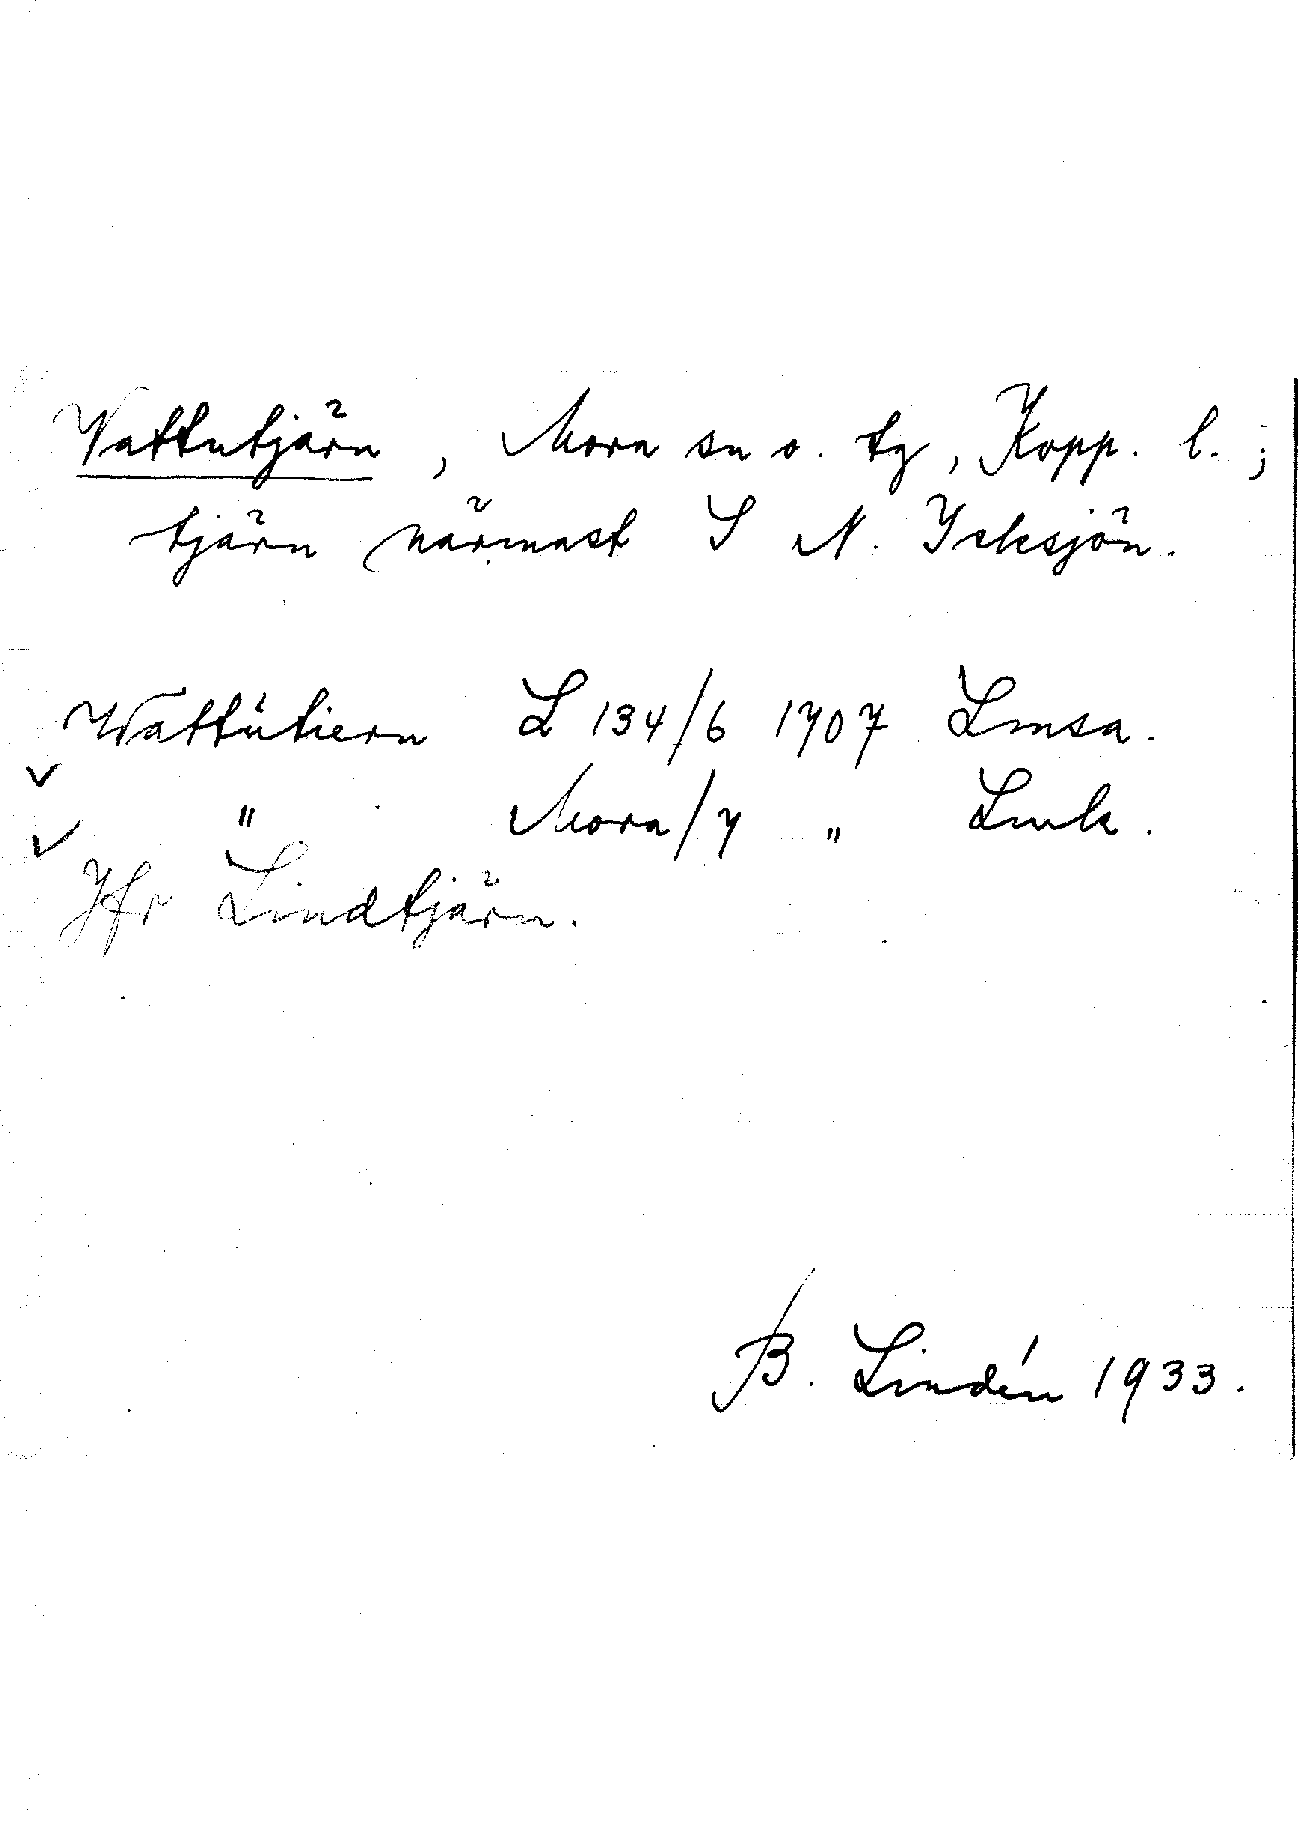 Vattutjärn, Mora sn o. tg, Kopp. l.;
tjärn närmast S N. Icksjön.
Wattutiern L 134/6 1707 Lmsa.
" Mora/7 " Lmk.
Jfr Lindtjärn.
B. Lindén 1933.